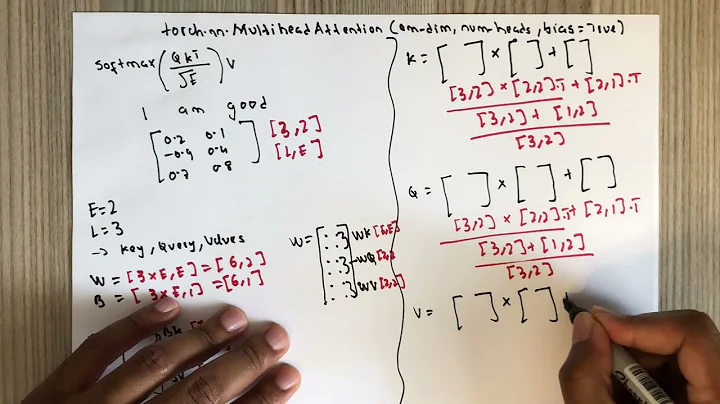 torch.nn.MultiheadAttention(em-dim, num-heads, bias=True)
Softmax(QKT/√E)V
I am good
0.2 0.1
-0.4 0.4
0.7 0.8
[3,2]
[L,E]
E=2
L=3
→ key, Query, Values
W = [3×E,E] = [6,2]
B = [3×E,1] = [6,1]
W=
:3 WK
:3 WQ
:3 WV [2,2]
K = [ ] × [ ] + [ ]
[3,2] × [2,2].T + [2,1].T
[3,2] + [1,2]
[3,2]
Q = [ ] × [ ] + [ ]
[3,2] × [2,2].T + [2,1].T
[3,2] + [1,2]
[3,2]
V = [ ] × [ ]